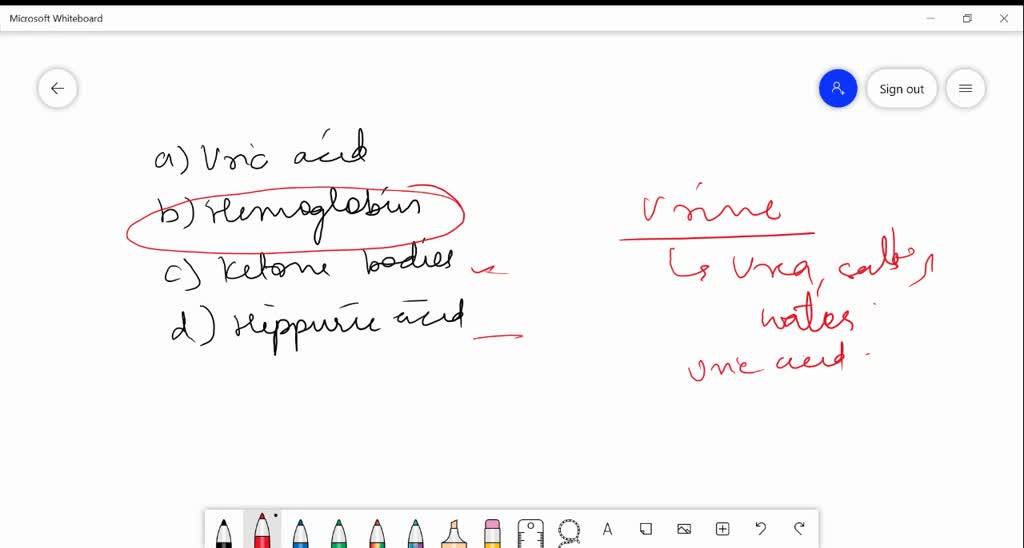 Microsoft Whiteboard
Sign out
a) Uric acid
b) Hemoglobin
c) Ketone bodies
d) Hippuric acid
Urine
↳ Urea, salts,
water
uric acid.
A